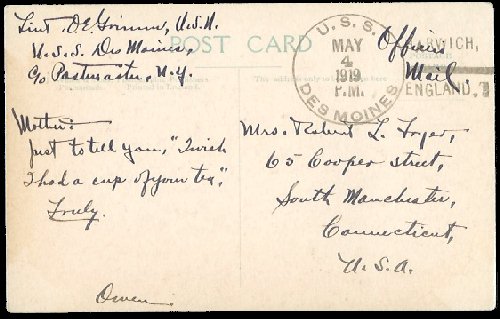 Lieut. O.E. Grimm, U.S.N.
U.S.S. Des Moines,
c/o Postmaster, N.Y.
POST CARD
U.S.S.
MAY
4
1919
P.M.
DES MOINES
HARWICH,
ENGLAND.
Officers
Mail.
Printed in
Mother:
Just to tell you, "I wish
I had a cup of your tea,"
Truly.
Owen
Mrs. Robert L.
65 Cooper street,
South Manchester,
Connecticut,
U.S.A.